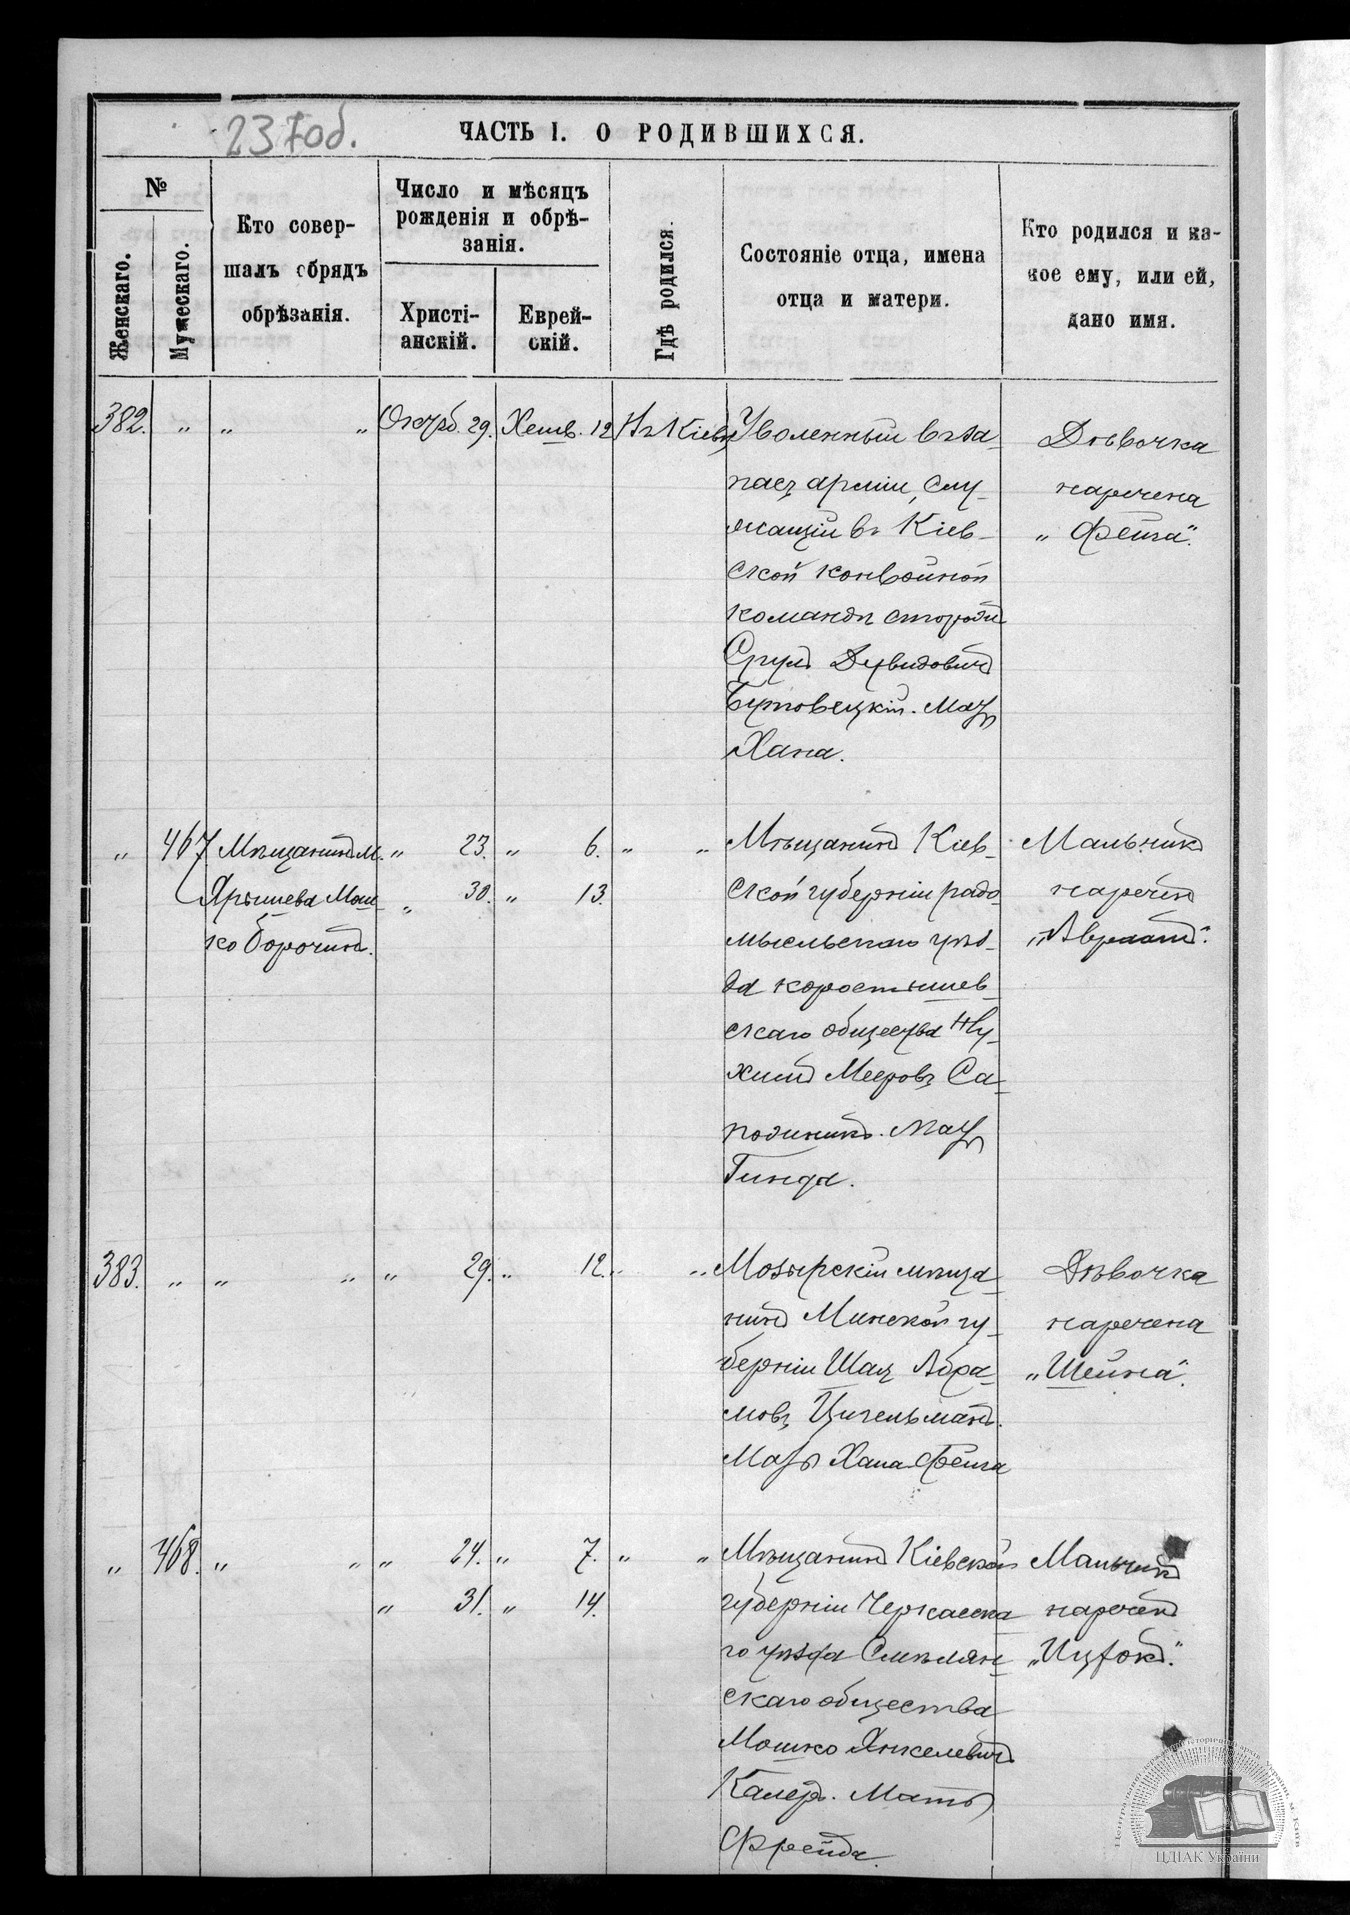 237об.
ЧАСТЬ I. О РОДИВШИХСЯ.
№
Женскаго.
Мужескаго.
Кто совер-
шалъ обрядъ
обрѣзанія.
Число и мѣсяцъ
рожденія и обрѣ-
занія.
Христі-
анскій.
Еврей-
скій.
Гдѣ родился.
Состояніе отца, имена
отца и матери.
Кто родился и ка-
кое ему, или ей,
дано имя.
382. " " " Октяб. 29. Хешв. 12 Въ Кіевѣ
Уволенный въ за-
пасъ арміи, слу-
жащій въ Кіев-
ской конвойной
командѣ
Сруль Дувидовичъ
Мать
Хана.
Дѣвочка
наречена
"Фейга".
" 467. Мѣщанинъ м. " 23. " 6. " "
Ярышева Мош- " 30. " 13.
ко Борочинъ.
Мѣщанинъ Кіев-
ской губерніи радо-
мысльскаго уѣз-
да коростышев-
скаго общества Ну-
химъ Мееровъ Са-
Мать
Гинда.
Мальчикъ
нареченъ
"Авраамъ".
383. " " " " 29. " 12. " "
Мозырскій мѣща-
нинъ Минской гу-
берніи Шая Абра-
мовъ Цигельманъ.
Мать Хая-Фейга
Дѣвочка
наречена
"Шейна".
" 468. " " " 24. " 7. " "
" 31. " 14.
Мѣщанинъ Кіевской
губерніи Черкасска-
го уѣзда Смѣлян-
скаго общества
Мошко Янкелевичъ
Калеръ. Мать
Фрейда.
Мальчикъ
нареченъ
"Ицхокъ".
ЦДІАК України